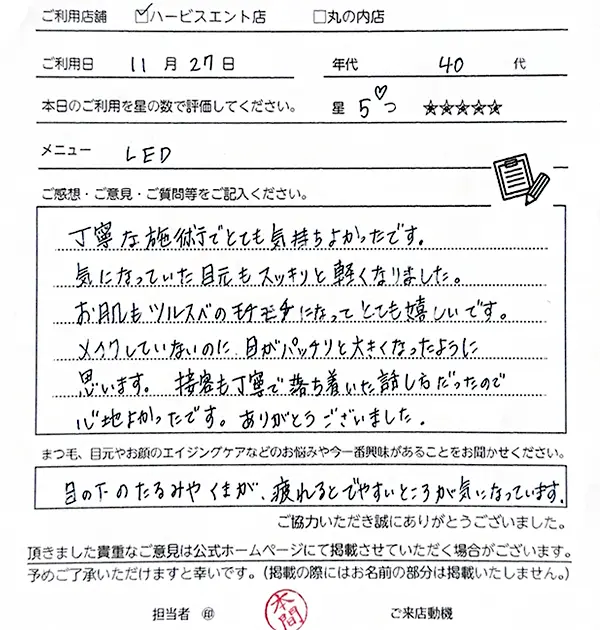 ご利用店舗 ☑ハービスエント店 □丸の内店
ご利用日 11月27日 年代 40代
本日のご利用を星の数で評価してください。 星 5♡つ ★★★★★
メニュー LED
ご感想・ご意見・ご質問等をご記入ください。
丁寧な施術でとても気持ちよかったです。
気になっていた目元もスッキリと軽くなりました。
お肌もツルスベのモチモチになってとても嬉しいです。
メイクしていないのに、目がパッチリと大きくなったように
思います。接客も丁寧で落ち着いた話し方だったので
心地よかったです。ありがとうございました.
まつ毛、目元やお顔のエイジングケアなどのお悩みや今一番興味があることをお聞かせください。
目の下のたるみや くまが、疲れるとでやすいところが気になっています.
ご協力いただき誠にありがとうございました。
頂きました貴重なご意見は公式ホームページにて掲載させていただく場合がございます。
予めご了承いただけますと幸いです。（掲載の際にはお名前の部分は掲載いたしません。）
担当者 ㊞ 本間 ご来店動機